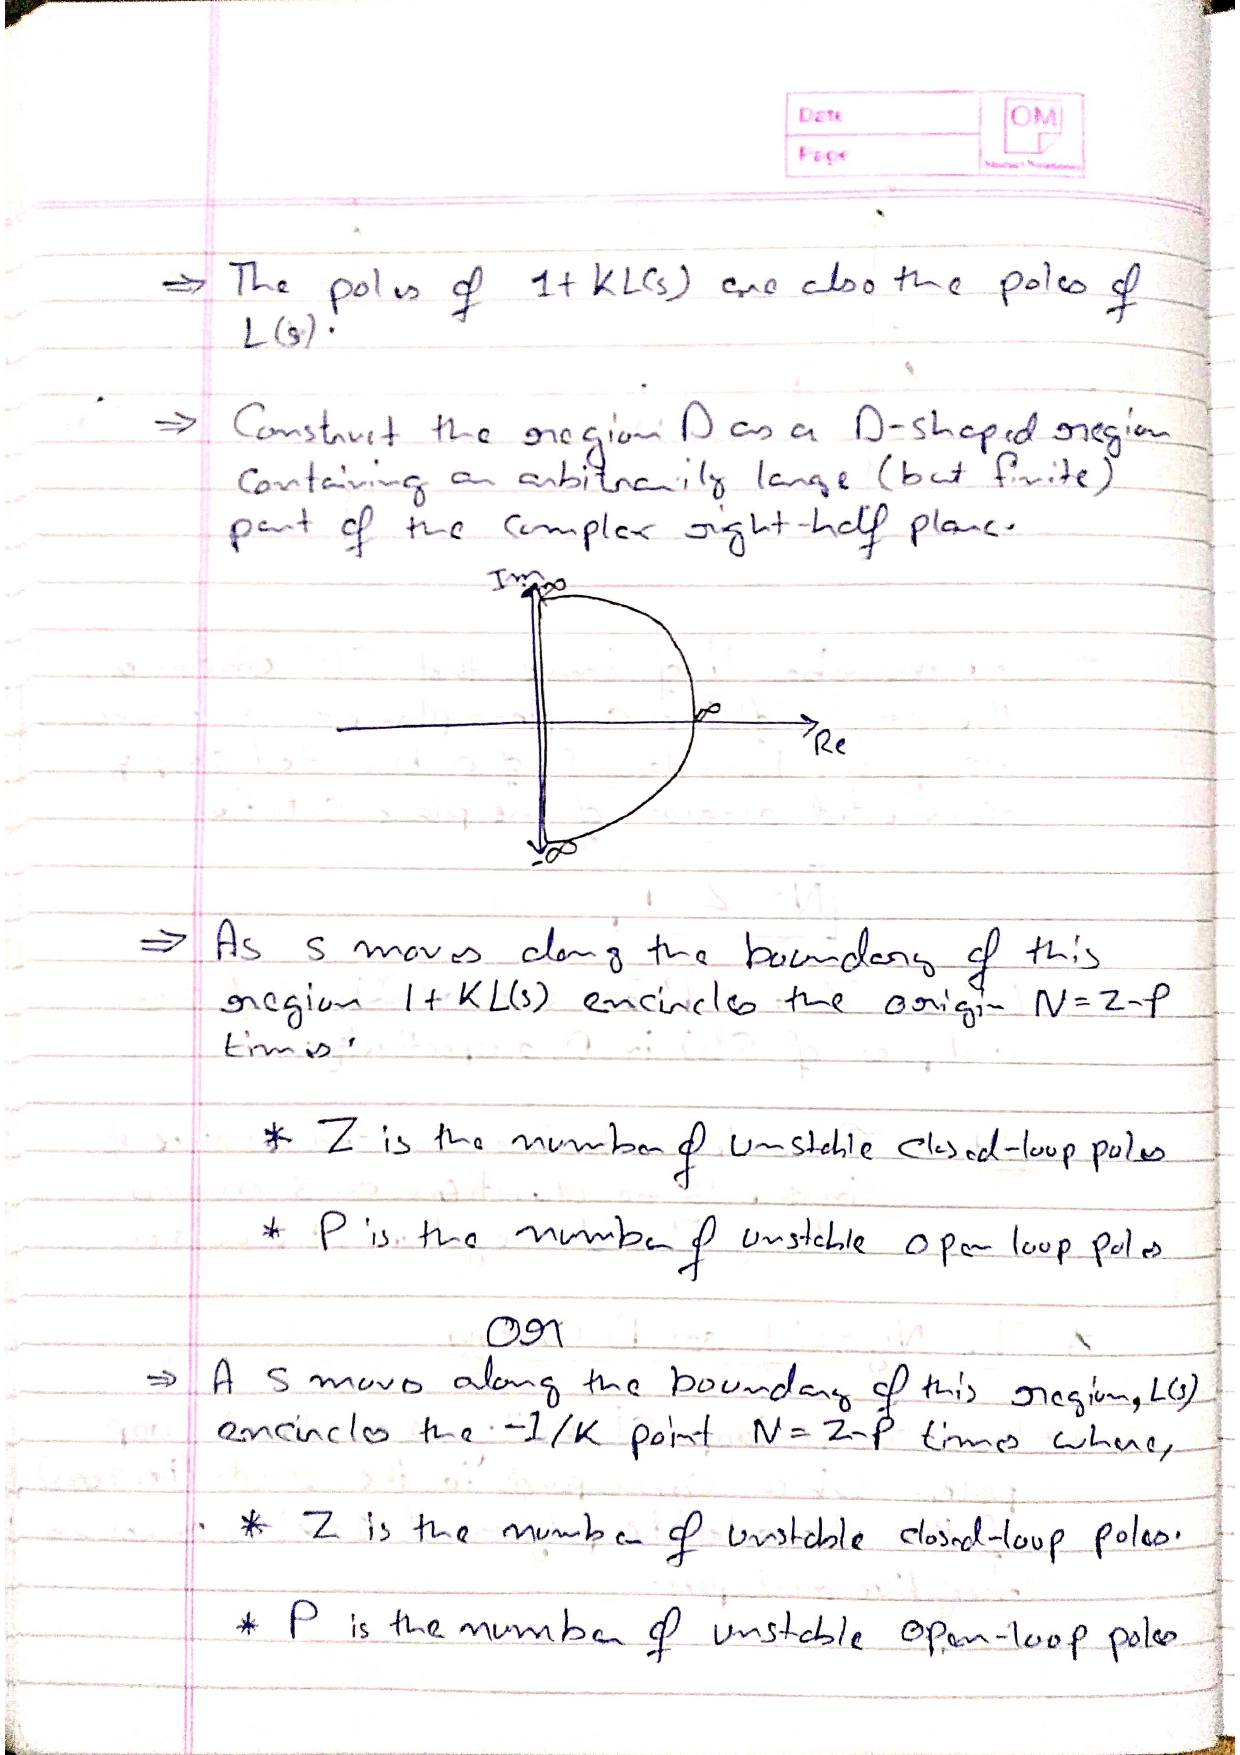 Date
Page
OM
⇒ The poles of 1+KL(s) are also the poles of
L(s).
⇒ Construct the region D as a D-shaped region
Containing an arbitrarily large (but finite)
part of the complex right-half plane.
Im ∞
∞
Re
-∞
⇒ As s moves along the boundary of this
region 1+KL(s) encircles the origin N=Z-P
times.
* Z is the number of unstable closed-loop poles
* P is the number of unstable open loop poles
OR
⇒ A s moves along the boundary of this region, L(s)
encircles the -1/K point N=Z-P times where,
* Z is the number of unstable closed-loop poles.
* P is the number of unstable open-loop poles